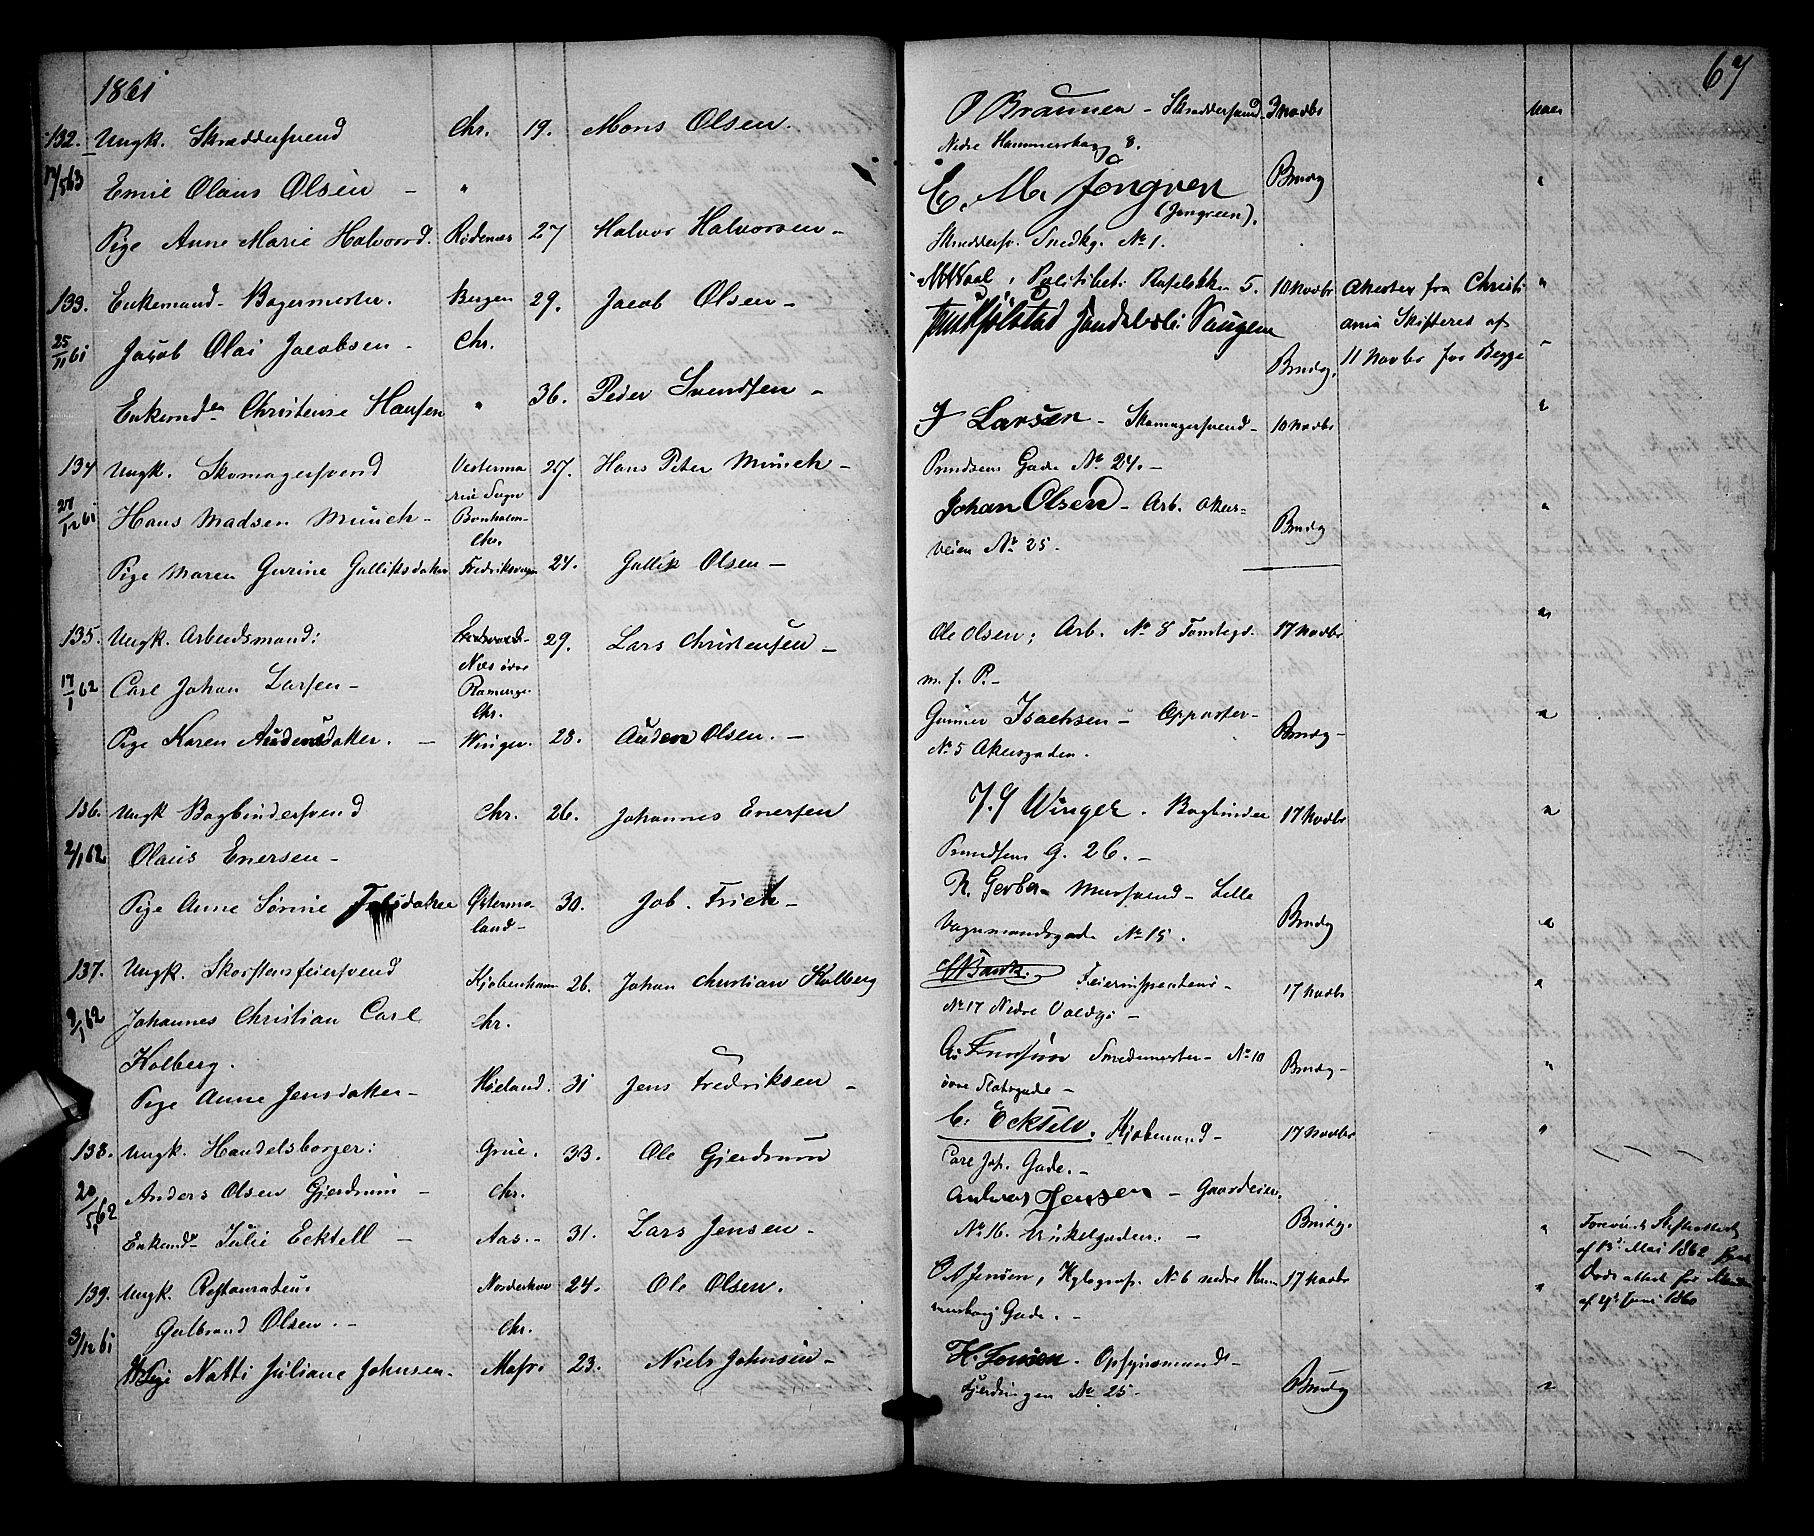 1861
132. Ungk. Skræddersvend Chr. 19. Mons Olsen.
17/5 63 Emil Olaus Olsen — "
Pige Anne Marie Halvorsd. Rødenæs 27 Halvor Halvorsen —
133. Enkemand - Bagermester. Bergen 29. Jacob Olsen —
25/11 61 Jacob Olai Jacobsen — Chr.
Enkemden Christense Hansen " 36. Peder Svendsen —
134 Ungk. Skomagersvend Vesterma 27. Hans Peter Münch —
rie Sogn
27/12 61 Hans Madsen Münch — Bornholm —
Chr.
Pige Maren Gurine Gulliksdatter 24. Gullik Olsen —
135. Ungk. Arbeidsmand: 29. Lars Christensen —
Næs
17/1 62 Carl Johan Larsen —
Chr.
Pige Karen Audensdatter. — Winger. 28. Auden Olsen. —
136. Ungk Bogbindersvend Chr. 26. Johannes Enersen
2/1 62 Olaus Enersen —
Pige Anne Sørine Østerma- 30. Job. Frick —
land —
137. Ungk. Skorstensfeiersvend Kjøbenhavn 26. Johan Christian Holberg
9/1 62 Johannes Christian Carl Chr.
Holberg.
Pige Anne Jensdatter — Høland. 31 Jens Fredriksen —
138. Ungk. Handelsborger: Grue. 33. Ole Gjerdrum
20/5 62 Anders Olsen Gjerdrum — Chr.
Enkemdn Julie Ecktell — Aas. 31. Lars Jensen —
139. Ungk. Restaurateur Norderhov 24. Ole Olsen.
Gulbrand Olsen. — Chr.
3/12 61 Pige Natti Juliane Johnsen. 23. Niels Johnsen —
67
O Braunen — Skræddersvend 3 Novbr
Nedre Hammersborg 8.
E. M. Jongren Brudg
(Jongreen).
Skræddersv. Smedbg. No 1.
Politibet. 5. 10 Novbr Attester fra Christi
ania Skifteret af
Brudg. 11 Novbr for Begge
J Larsen — Skomagersvend — 10 Novbr
Prindsens Gade No 24. —
Johan Olsen — Arb. Akers- Brudg
veien No 25.
Ole Olsen; Arb. No 8 Tomtegd. 17 Novbr
m. f. P. —
Gunner Isachsen — Oppasser — Brudg —
No 5 Akersgaden.
J. G Winger. Bogbinder 17 Novbr
Prindsens G. 26. —
R. Gerber — Mursvend — Lille Brudg
Vognmandsgade No 15.
Feierinspecteur — 17 Novbr
No 17 Nedre Voldgd —
Smedemester — No 10 Brudg —
øvre Slotsgade —
C. Ecktell. Kjøbmand — 17 Novbr
Carl Joh. Gade. —
Andreas Jensen — Gaardeier. Brudg.
No 16. Vinkelgaden. — Forevist Skifteattest
af 13d Mai 1862
O A Jensen, Xylograf. No 6 nedre Ham 17 Novbr Dødsattest for
mersborg Gade. — af 4d Juni 1860
H. Jensen — Opsynsmand — Brudg
Fjerdingen No 25.